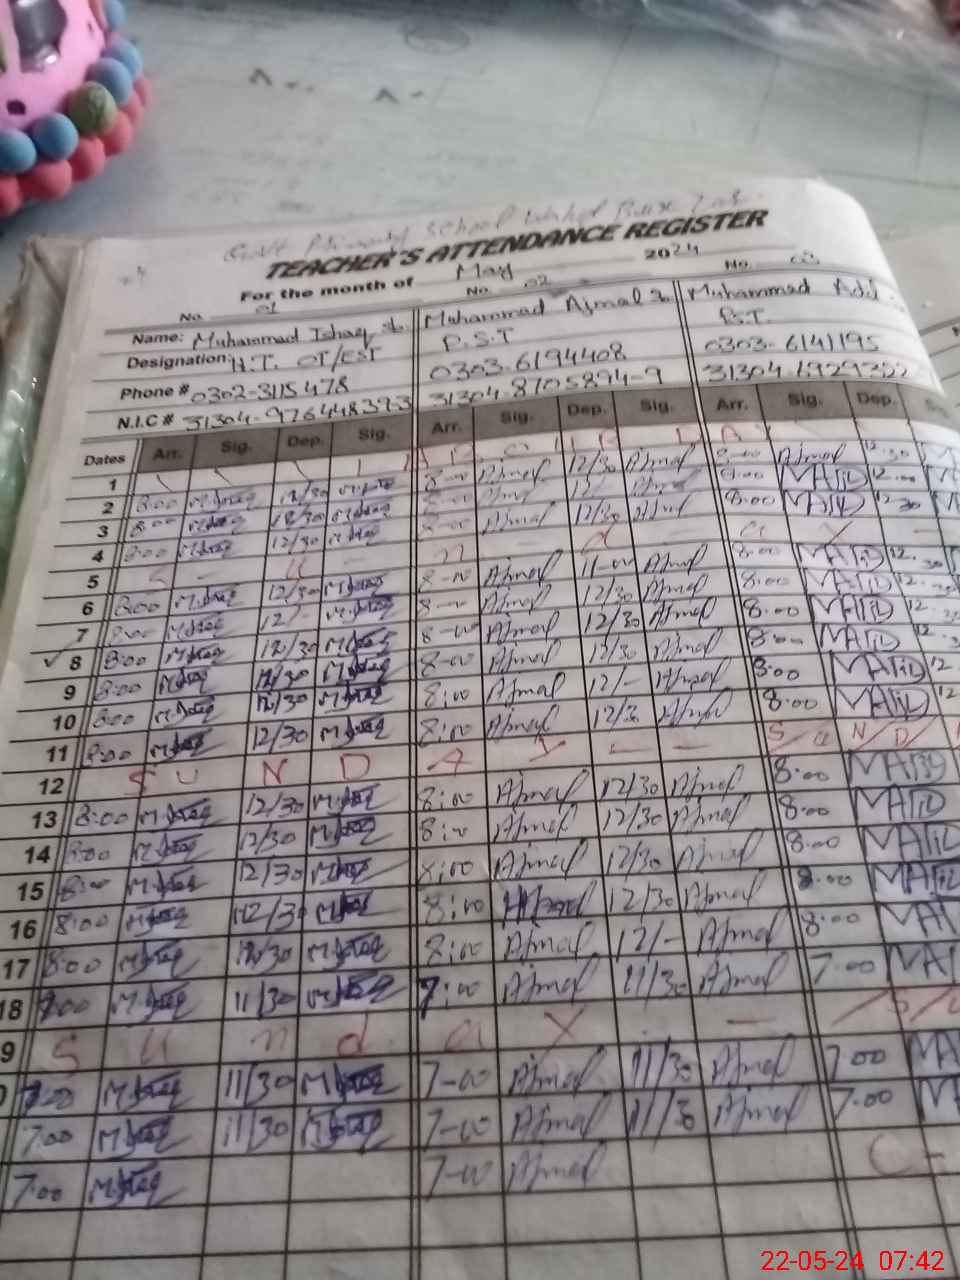 Govt Primary School Wahid Bux
TEACHER'S ATTENDANCE REGISTER
For the month of May 2024
No. 01 No. 02 No. 03
Name: Muhammad Ishaq Muhammad Ajmal Muhammad
Designation: H.T. OT/EST P.S.T P.S.T.
Phone # 0302-3115478 0303-6194408 0303-6141195
N.I.C # 31304-976448393 31304-8705894-9
Dates Arr. Sig. Dep. Sig. Arr. Sig. Dep. Sig. Arr. Sig. Dep.
1
2 8:00 M.Ishaq 12/30 M.Ishaq 8-00 Ajmal 12/30 Ajmal
3 8:00 M.Ishaq 12/30 8:00 MAJID
4 8:00 M.Ishaq 12/30 M.Ishaq 8-00 Ajmal 12/30 Ajmal 8:00 MAJID 12-30
5 S U n d a y
6 8:00 M.Ishaq 12/30 M.Ishaq 8-00 Ajmal 11-00 Ajmal 8:00 MAJID 12
7 8:00 M.Ishaq 12/- M.Ishaq 8-00 Ajmal 12/30 Ajmal 8:00 MAJID 12
8 8:00 M.Ishaq 12/30 M.Ishaq 8-00 Ajmal 12/30 Ajmal 8:00 MAJID 12
9 8:00 M.Ishaq 12/30 M.Ishaq 8-00 Ajmal 12/30 Ajmal 8:00 MAJID 12
10 8:00 M.Ishaq 12/30 M.Ishaq 8:00 Ajmal 12/- Ajmal 8:00 MAJID 12
11 8:00 M.Ishaq 12/30 M.Ishaq 8:00 Ajmal 12/3 Ajmal
12 S U N D A y S/U N/D/
13 8:00 M.Ishaq 12/30 M.Ishaq 8:00 Ajmal 12/30 Ajmal 8:00 MAJID
14 8:00 M.Ishaq 12/30 M.Ishaq 8:00 Ajmal 12/30 Ajmal 8:00 MAJID
15 8:00 M.Ishaq 12/30 M.Ishaq 8:00 Ajmal 12/30 Ajmal 8:00 MAJID
16 8:00 M.Ishaq 12/30 M.Ishaq 8:00 Ajmal 12/30 8:00 MAJID
17 8:00 M.Ishaq 12/30 M.Ishaq 8:00 Ajmal 12/- Ajmal 8:00 MAJ
18 7:00 M.Ishaq 11/30 M.Ishaq 7:00 Ajmal 11/30 Ajmal 7:00 MAJ
9 S u n d a y /S/U
0 7:00 M.Ishaq 11/30 M.Ishaq 7-00 Ajmal 11/30 Ajmal 7:00 MA
7:00 M.Ishaq 11/30 M.Ishaq 7-00 Ajmal 11/30 Ajmal 7:00 M
7:00 M.Ishaq 7-00 Ajmal C-
22-05-24 07:42